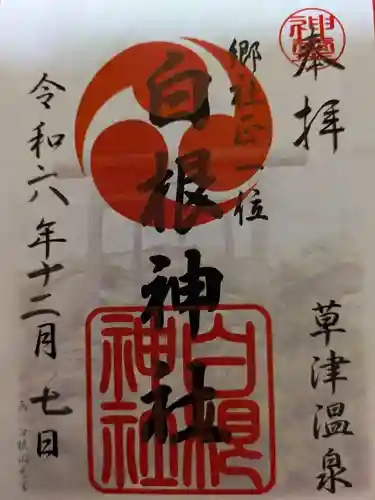 奉拝
草津温泉
郷社正一位
白根神社
令和六年十二月七日
白根神社